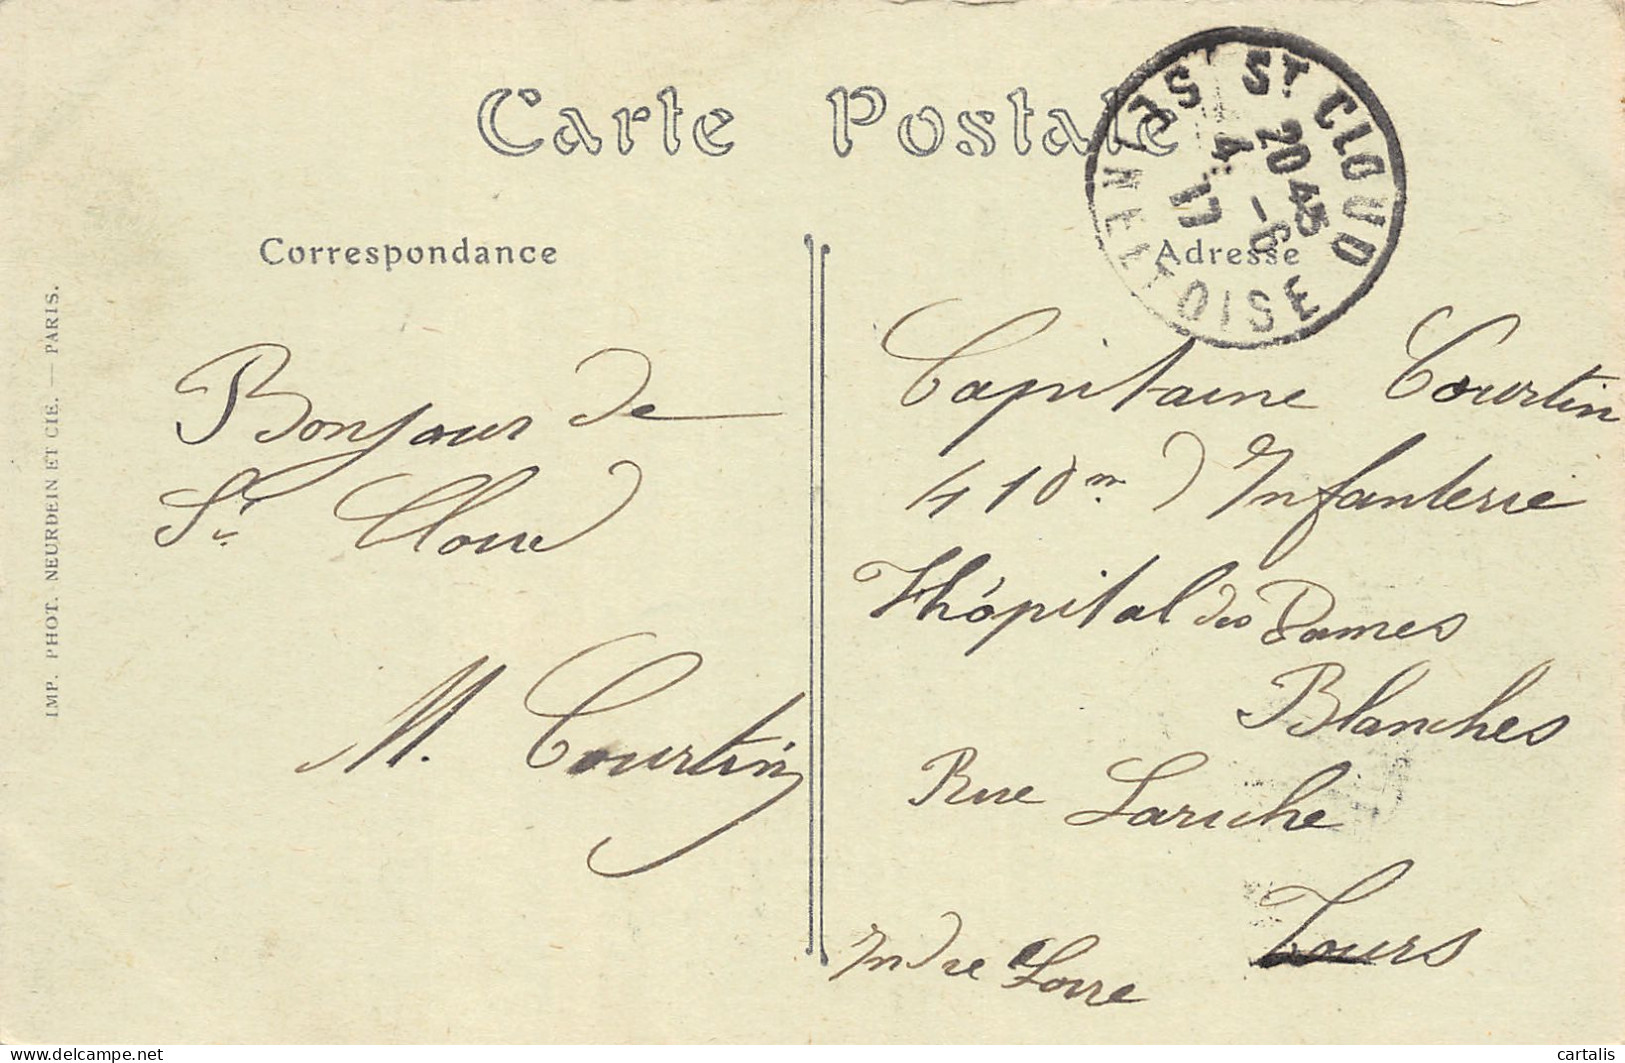 Carte Postale
Correspondance
Adresse
ST CLOUD
SEINE ET OISE
20 45
4 - 6
17
Bonjour de
St Cloud
M. Courtin
Capitaine Courtin
410 m d Infanterie
Hhôpital des Dames
Blanches
Rue Lariche
Tours
Indre Loire
IMP. PHOT. NEURDEIN ET CIE. — PARIS.
delcampe.net
cartalis